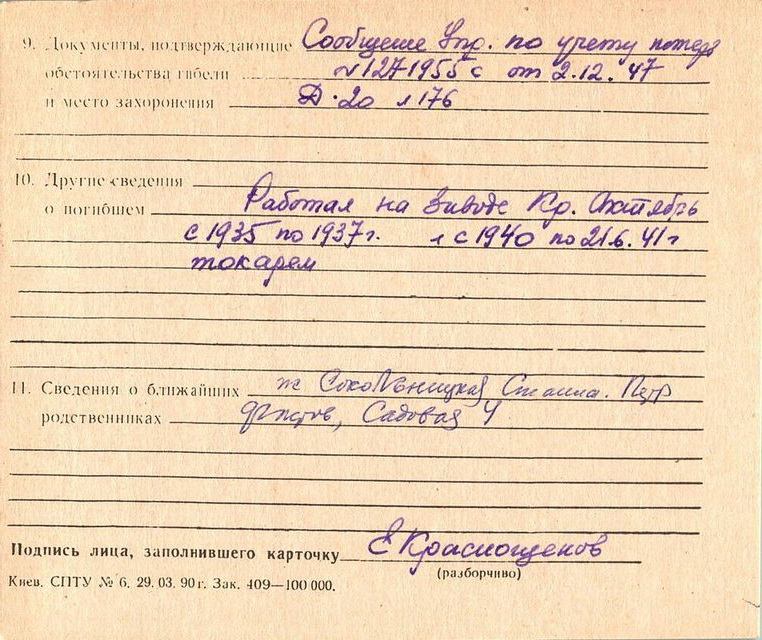 9. Документы, подтверждающие Сообщение Упр. по учету потерь
обстоятельства гибели №1271955с от 2.12.47
и место захоронения Д.20 л176
10. Другие сведения
о погибшем Работал на заводе Кр. Октябрь
с 1935 по 1937г. и с 1940 по 21.6.41г
токарем
11. Сведения о ближайших ж Сокольницкая Петр
родственниках Садовая 4
Подпись лица, заполнившего карточку Е Краснощеков
(разборчиво)
Киев. СПТУ № 6. 29. 03. 90 г. Зак. 409—100 000.